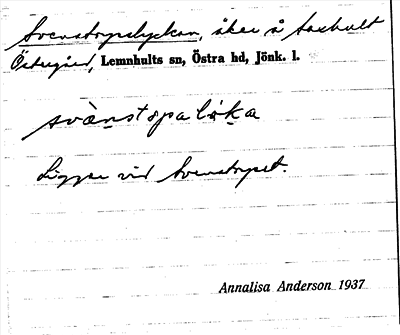 Svenstorpslyckan, åker å Saxhult
Östergård, Lemnhults sn, Östra hd, Jönk. l.
svànstspalika
Ligger vid Svenstorpet.
Annalisa Anderson 1937